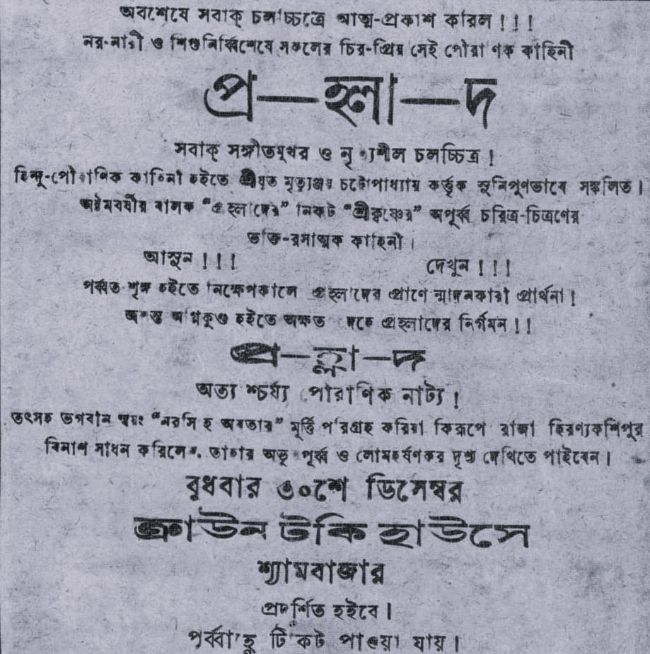 অবশেষে সবাক্ চলচ্চিত্রে আত্ম-প্রকাশ করিল ! ! !
নর-নারী ও শিশুনির্ব্বিশেষে সকলের চির-প্রিয় সেই পৌরাণিক কাহিনী
প্র—হ্লা—দ
সবাক্ সঙ্গীতমুখর ও নৃত্যশীল চলচ্চিত্র !
হিন্দু-পৌরাণিক কাহিনী হইতে শ্রীযুত মৃত্যুঞ্জয় চট্টোপাধ্যায় কর্ত্তৃক সুনিপুণভাবে সঙ্কলিত।
অষ্টমবর্ষীয় বালক “প্রহ্লাদের” নিকট “শ্রীকৃষ্ণের” অপূর্ব্ব চরিত্র-চিত্রণের
ভক্তি-রসাত্মক কাহিনী।
আসুন ! ! ! দেখুন ! ! !
পর্ব্বত শৃঙ্গ হইতে নিক্ষেপকালে প্রহ্লাদের প্রাণে প্রার্থনা !
জ্বলন্ত অগ্নিকুণ্ড হইতে অক্ষত দেহে প্রহ্লাদের নির্গমন ! !
প্র—হ্লা—দ
অত্যাশ্চর্য্য পৌরাণিক নাট্য !
তৎসহ ভগবান স্বয়ং “নরসিংহ অবতার” মূর্ত্তি পরিগ্রহ করিয়া কিরূপে রাজা হিরণ্যকশিপুর
বিনাশ সাধন করিলেন, তাহার অভূতপূর্ব্ব ও লোমহর্ষণকর দৃশ্য দেখিতে পাইবেন।
বুধবার ৩০শে ডিসেম্বর
ক্রাউন টকি হাউসে
শ্যামবাজার
প্রদর্শিত হইবে।
পূর্ব্বাহ্ণে টিকিট পাওয়া যায়।